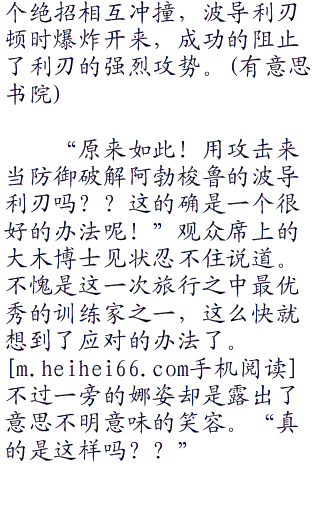 个绝招相互冲撞，波导利刃
顿时爆炸开来，成功的阻止
了利刃的强烈攻势。(有意思
书院)
“原来如此！用攻击来
当防御破解阿勃梭鲁的波导
利刃吗？？这的确是一个很
好的办法呢！”观众席上的
大木博士见状忍不住说道。
不愧是这一次旅行之中最优
秀的训练家之一，这么快就
想到了应对的办法了。
[m.heihei66.com手机阅读]
不过一旁的娜姿却是露出了
意思不明意味的笑容。“真
的是这样吗？？”